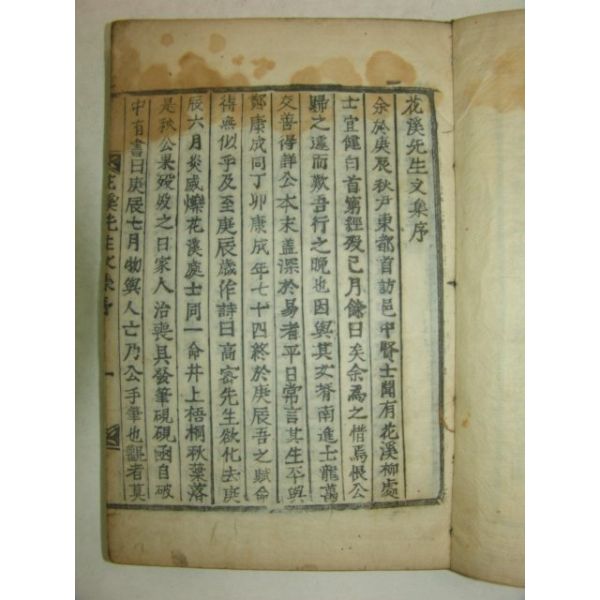 花溪先生文集序
余於庚辰秋尹東都首訪邑中賢士聞有花溪柳處
士宜健白首窮經歿已月餘日矣余為之惜焉恨公
歸之遽而歎吾行之晩也因與其友脊南進士龍萬
交善得詳公本末盖深於易者平日常言其生平與
鄭康成同丁卯康成年七十四終於庚辰吾之賦命
得無似乎及至庚辰歲作詩曰高密先生欲化去庚
辰六月炎威爍花溪處士同一命井上梧桐秋葉落
是秋公果歿歿之日家人治喪具發筆硯硯函自破
中有書曰庚辰七月物與人亡乃公手筆也觀者莫
花溪先生文集序 一